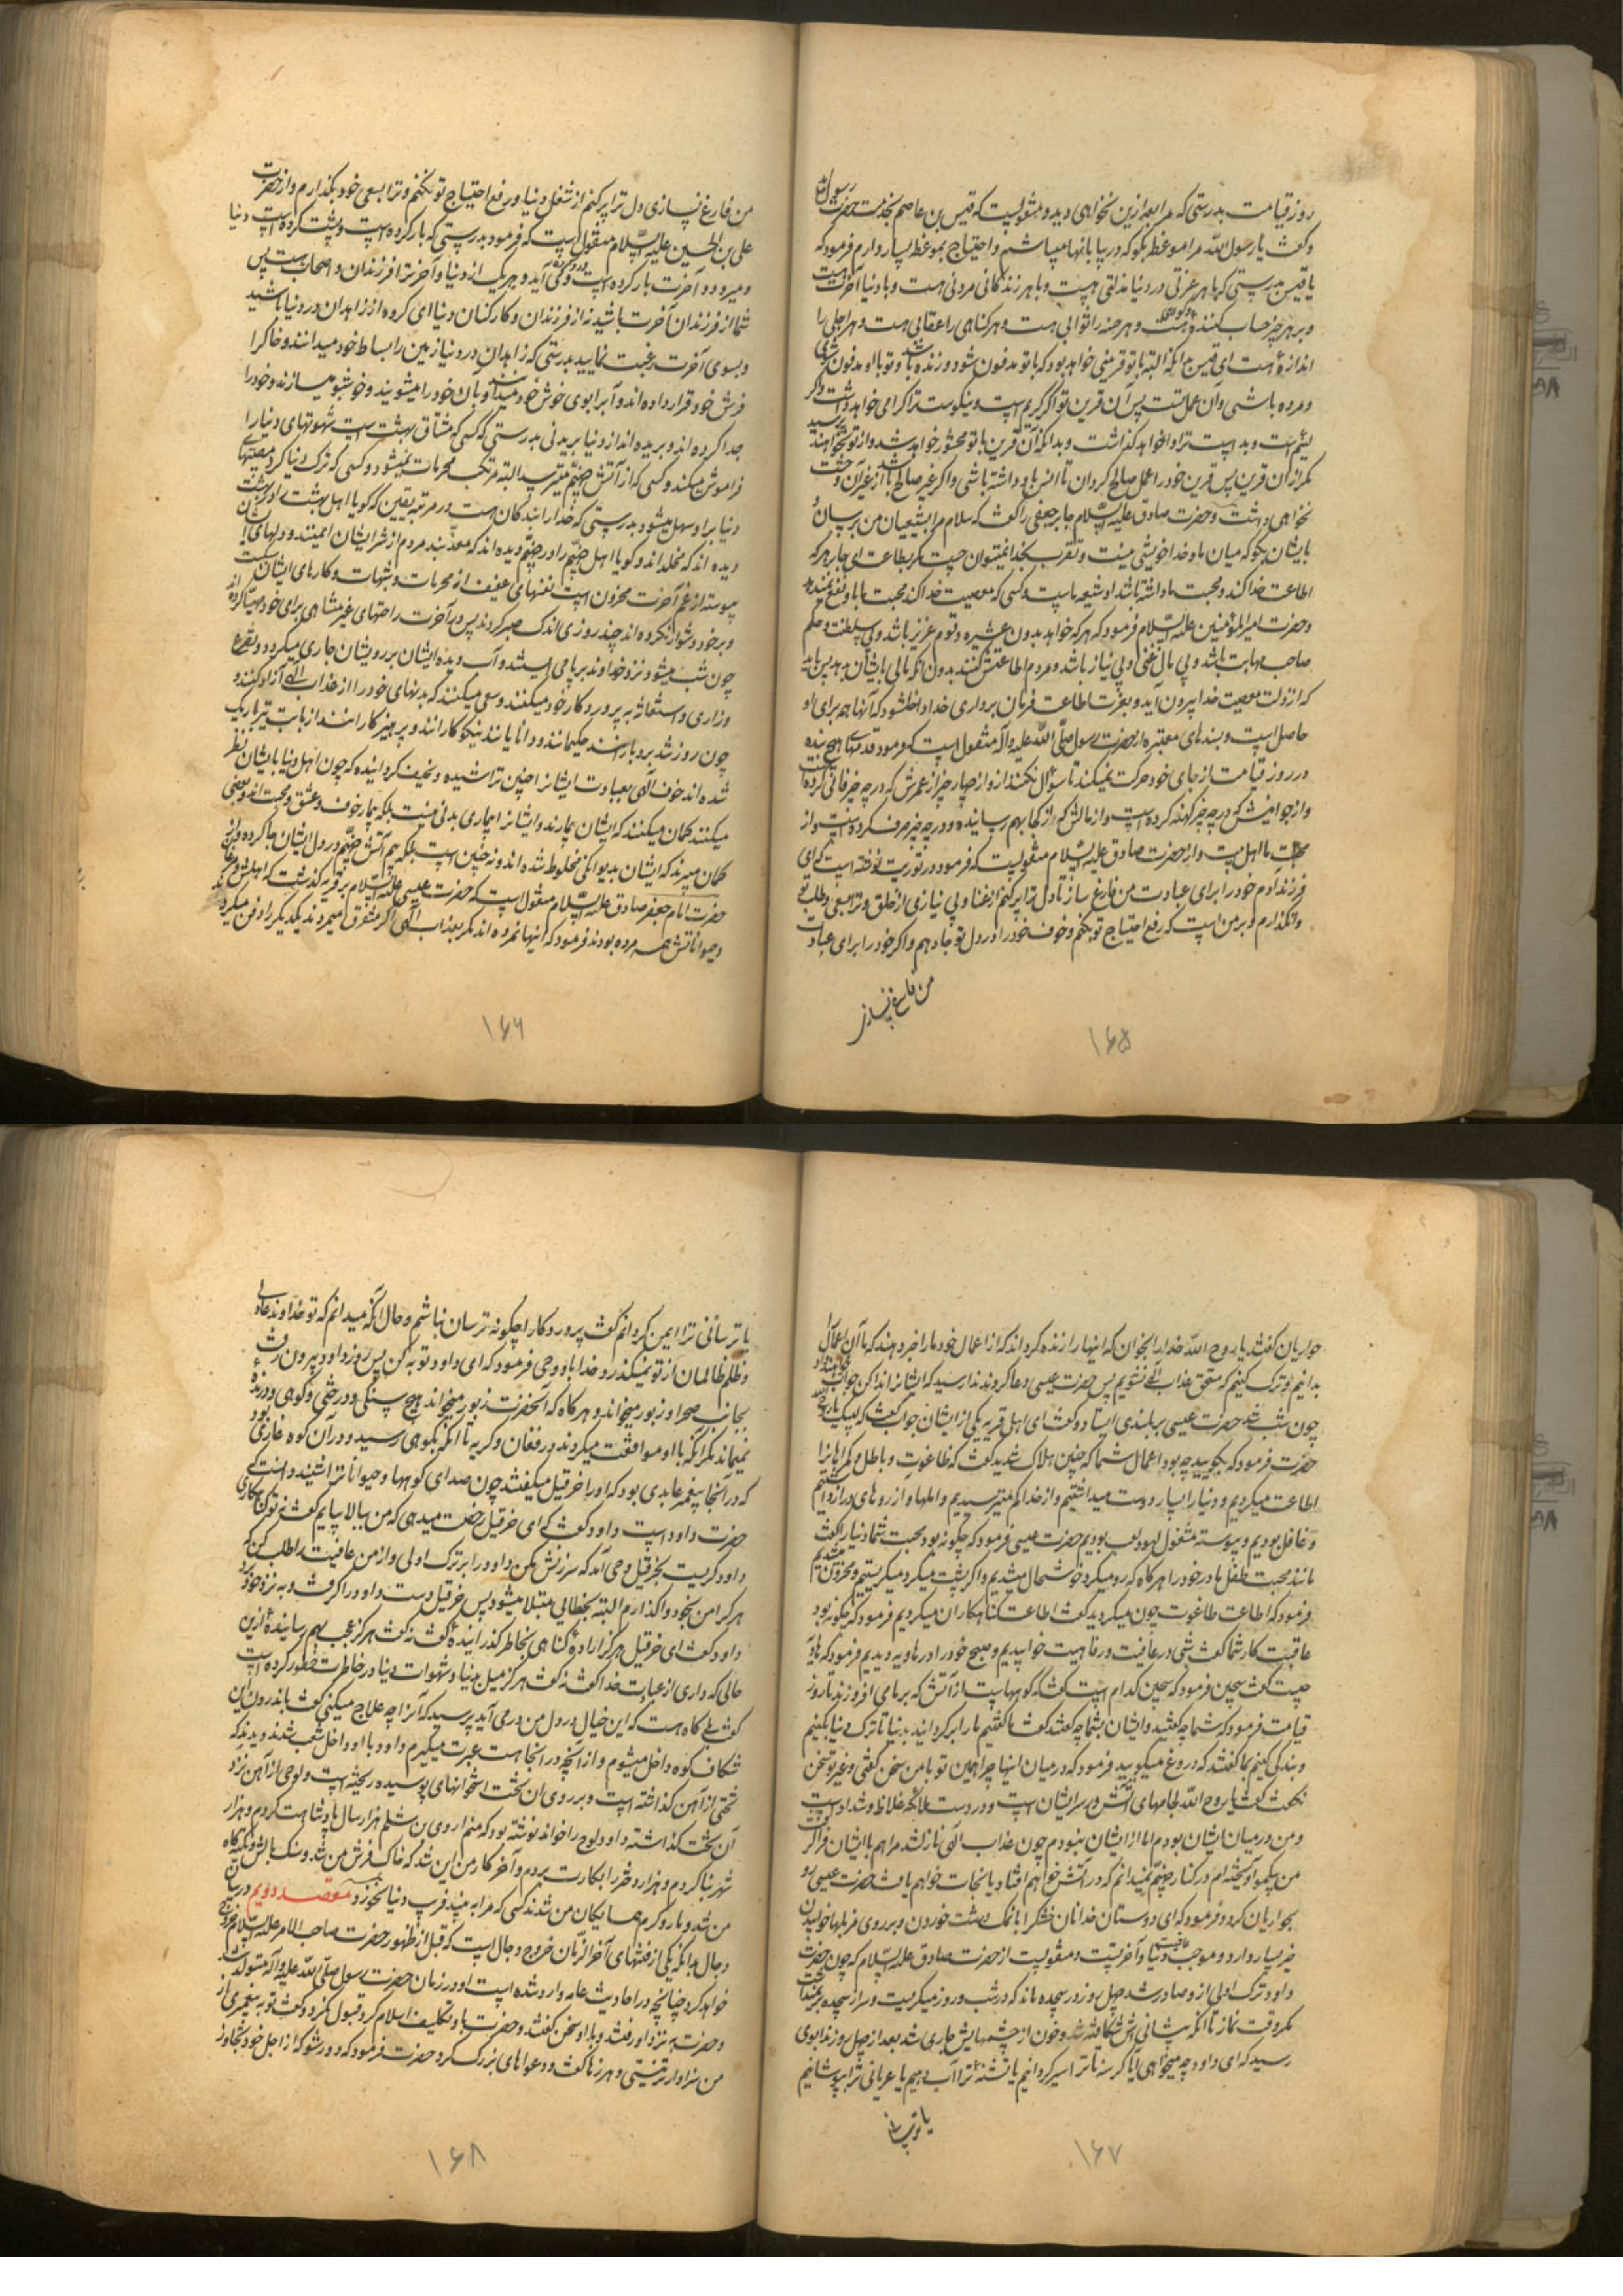 روز قیامت بدرستی که مرا بعد ازین نخواهی دید و منقولیست که قیس بن عاصم بخدمت حضرت رسول
و گفت یا رسول اللّه مرا موعظه بگو که در بیابانها میباشم و احتیاج بموعظه بسیار دارم فرمود که
یا قیس بدرستی که با هر عزتی در دنیا مذلتی هست و با هر زندگانی مردنی هست و با دنیا آخرت هست
و بر هر چیز حساب کننده هست و هر حسنه را ثوابی هست و هر گناهی را عقابی هست و هر اجلی را
اندازهٔ هست ای قیس بدانکه البته با تو قرینی خواهد بود که با تو مدفون شود و زنده باشد و تو با او مدفون شوی
و مرده باشی و آن عمل تست پس آن قرین تو اگر کریم است و نیکوست ترا گرامی خواهد داشت و اگر
لئیم است و بد است ترا وا خواهد گذاشت و بدانکه آن قرین با تو محشور خواهد شد و از تو نخواهند پرسید
مگر از آن قرین پس قرین خود را عمل صالح گردان تا انس باو داشته باشی و اگر غیر صالح باشد از غیر آن وحشت
نخواهی داشت و حضرت صادق علیه السّلام جابر جعفی را گفت که سلام مرا بشیعیان من برسان و
بایشان بگو که میان ما و خدا خویشی نیست و تقرب بخدا نمیتوان جست مگر بطاعت ای جابر هر که
اطاعت خدا کند و محبت ما داشته باشد او شیعه ماست و کسی که معصیت خدا کند محبت ما باو نفع نمیدهد
و حضرت امیر المؤمنین علیه السّلام فرمود که هر که خواهد بدون عشیره و قوم عزیز باشد و بی سلطنت و حکم
صاحب مهابت باشد و بی مال غنی و بی نیاز باشد و مردم اطاعتش کنند بدون آنکه مالی بایشان بدهد پس باید
که از ذلت معصیت خدا بیرون آید و بعزت اطاعت و فرمان برداری خدا داخل شود که آنها همه برای او
حاصل است و بسندهای معتبره از حضرت رسول صلّی اللّه علیه و آله منقول است که فرمود قدمهای هیچ بنده
در روز قیامت از جای خود حرکت نمیکند تا سؤال نکنند از او از چهار چیز از عمرش که در چه چیز فانی کرده است
و از جوانیش که در چه چیز کهنه کرده است و از مالش که از کجا بهم رسانیده و در چه چیز صرف کرده است و از
محبت ما اهل بیت و از حضرت صادق علیه السّلام منقولیست که فرمود در توریت نوشته است که ای
فرزند آدم خود را برای عبادت من فارغ ساز تا دل ترا پر کنم از غنا و بی نیازی از خلق و ترا بسعی و طلب تو
وانگذارم و بر من است که رفع احتیاج تو بکنم و خوف خود را در دل تو جا دهم و اگر خود را برای عبادت
من فارغ نسازی
۱۶۵
من فارغ نسازی دل ترا پر کنم از شغل دنیا و رفع احتیاج تو نکنم و ترا بسعی خود بگذارم و از حضرت
علی بن الحسین علیه السّلام منقول است که فرمود بدرستی که بار کرده است و پشت کرده است دنیا
و میرود و آخرت بار کرده است و رو کرده می آید و هر یک از دنیا و آخرت را فرزندان و اصحاب هست پس
شما از فرزندان آخرت باشید نه از فرزندان و کارکنان دنیا ای گروه از زاهدان در دنیا باشید
و بسوی آخرت رغبت نمایید بدرستی که زاهدان در دنیا زمین را بساط خود میدانند و خاک را
فرش خود قرار داده اند و آب را بوی خوش خود میدانند و بآن خود را میشویند و خوشبو میسازند و خود را
جدا کرده اند و بریده اند از دنیا بریدنی بدرستی که کسی که مشتاق بهشت است شهوتهای دنیا را
فراموش میکند و کسی که از آتش جهنّم میترسد البته مرتکب محرمات نمیشود و کسی که ترک دنیا کرد مصیبتهای
دنیا بر او سهل میشود بدرستی که خدا را بندگان هست در مرتبه یقین که گویا اهل بهشت را در بهشت
دیده اند که مخلدند و گویا اهل جهنّم را در جهنّم دیده اند که معذبند مردم از شر ایشان ایمنند و دلهای ایشان
پیوسته از غم آخرت محزون است نفسهای عفیف از محرمات و شبهات و کارهای ایشان سبکست
و بر خود دشوار نکرده اند چند روزی اندک صبر کردند پس در آخرت راحتهای غیر متناهی برای خود مهیّا کرده اند
چون شب میشود نزد خداوند بر پا می ایستند و آب دیده ایشان بر رویشان جاری میگردد و تضرع
و زاری و استغاثه به پروردگار خود میکنند و سعی میکنند که بدنهای خود را از عذاب الٓهی آزاد کنند و
چون روز شد بردبارانند حکیمانند و دانایانند نیکوکارانند و پرهیزکارانند از بابت تیر باریک
شده اند خوف الٓهی بعبادت ایشانرا چنین تراشیده و نحیف گردانیده که چون اهل دنیا بایشان نظر
میکنند گمان میکنند که ایشان بیمارند و ایشانرا بیماری بدنی نیست بلکه بیمار خوف و عشق و محبت اند و بعضی
گمان میبرند که ایشان بدیوانگی مخلوط شده اند و نه چنین است بلکه بیم آتش جهنّم در دل ایشان جا کرده و از
حضرت امام جعفر صادق علیه السّلام منقول است که حضرت عیسی علیه السّلام بر قریه گذشت که اهلش و مرغان
و حیواناتش همه مرده بودند فرمود که اینها نمرده اند مگر بعذاب الٓهی اگر متفرق میمردند یکدیگر را دفن میکردند
۱۶۶
حواریان گفتند یا روح اللّه خدا را بخوان که اینها را زنده گرداند که از اعمال خود ما را خبر دهند که ما آن اعمال را
بدانیم و ترک کنیم که مستحق عذاب الٓهی نشویم پس حضرت عیسی دعا کرد و ندا رسید که ایشانرا ندا کن جواب خواهند داد
چون شب شد حضرت عیسی بر بلندی ایستاد و گفت ای اهل قریه یکی از ایشان جواب گفت که لبیک یا روح اللّه
حضرت فرمود که بگویید چه بود اعمال شما که چنین هلاک شدید گفت که طاغوت و باطل و گمراهانرا
اطاعت میکردیم و دنیا را بسیار دوست میداشتیم و از خدا کم میترسیدیم و املها و آرزوهای دراز داشتیم
و غافل بودیم و پیوسته مشغول لهو و لعب بودیم حضرت عیسی فرمود که چگونه بود محبت شما دنیا را گفت
مانند محبت طفل مادر خود را هر گاه که رو میکرد خوشحال میشدیم و اگر پشت میکرد میگریستیم و محزون میشدیم
فرمود که اطاعت طاغوت چون میکردید گفت اطاعت گناهکاران میکردیم فرمود که چگونه بود
عاقبت کار شما گفت شبی در عافیت و رفاهیت خوابیدیم و صبح خود را در هاویه دیدیم فرمود که هاویه
چیست گفت سجین فرمود که سجین کدام است گفت که کوههاست از آتش که بر ما می افروزند تا روز
قیامت فرمود که شما چه گفتید و ایشان بشما چه گفتند گفت ما گفتیم ما را برگردانید بدنیا تا ترک دنیا بکنیم
و بندگی کنیم بما گفتند که دروغ میگویید فرمود که در میان اینها چرا همین تو با من سخن گفتی و غیر تو سخن
نگفت گفت یا روح اللّه لجامهای آتش در سر ایشان است و در دست ملائکه غلاظ و شداد است
و من در میان ایشان بودم اما از ایشان نبودم چون عذاب الٓهی نازل شد مرا هم با ایشان فرا گرفت
من بیکمو آویخته ام در کنار جهنّم نمیدانم که در آتش خواهم افتاد یا نجات خواهم یافت حضرت عیسی رو
بحواریان کرد و فرمود که ای دوستان خدا نان خشک را با نمک درشت خوردن و بر روی مزبلها خوابیدن
خیر بسیار دارد و موجب عافیت دنیا و آخرتست و منقولیست از حضرت صادق علیه السّلام که چون حضرت
داود ترک اولی از و صادر شد چهل روز در سجده ماند که در شب و روز میگریست و سر از سجده بر نمیداشت
مگر وقت نماز تا آنکه پیشانی اش شکافته شد و خون از چشمهایش جاری شد بعد از چهل روز ندا باوی
رسید که ای داود چه میخواهی آیا گرسنه تا ترا سیر گردانیم یا تشنه ترا آب دهیم یا عریانی ترا بپوشانیم
یا ترسانی
۱۶۷
یا ترسانی ترا ایمن گردانم گفت پروردگارا چگونه ترسان نباشم و حال آنکه میدانم که تو خداوند عادلی
و ظلم ظالمان از تو نمیگذرد خدا باو وحی فرمود که ای داود توبه کن پس روزی داود بیرون رفت
بجانب صحرا و زبور میخواند و هر گاه که آنحضرت زبور میخواند هیچ سنگی و درختی و کوهی و درندهٔ
نمیماند مگر آنکه با او موافقت میکردند در فغان و گریه تا آنکه بکوهی رسید و در آن کوه غاری بود
که در آنجا پیغمبر عابدی بود که او را حزقیل میگفتند چون صدای کوهها و حیواناترا شنید دانست که
حضرت داود است داود گفت که ای حزقیل رخصت میدهی که من ببالا بیایم گفت نه تو گناهکاری
داود گریست بحزقیل وحی آمد که سرزنش مکن داود را بر ترک اولی و از من عافیت را طلب کن که
هر کرا من بخود واگذارم البته بخطائی مبتلا میشود پس حزقیل دست داود را گرفت و به نزد خود برد
داود گفت ای حزقیل هرگز ارادهٔ گناهی بخاطر گذرانیدهٔ گفت نه گفت هرگز عجب بهم رسانیدهٔ ازین
حالی که داری از عبادت خدا گفت نه گفت هرگز میل بدنیا و شهوات دنیا در خاطرت خطور کرده است
گفت بلی گاه هست که این خیال در دل من در می آید پرسید که آنرا چه علاج میکنی گفت باندرون این
شکاف کوه داخل میشوم و از آنچه در آنجا هست عبرت میگیرم داود با او داخل شعب شدند دیدند که
تختی از آهن گذاشته است و بر روی آن تخت استخوانهای پوسیده ریخته است و لوحی از آهن نزد
آن تخت گذاشته داود لوح را خواند نوشته بود که منم اروی بن شلم هزار سال پادشاهت کردم و هزار
شهر بنا کردم و هزار دختر را بکارت بردم و آخر کار من این شد که خاک فرش من شد و سنک بالش و تکیه گاه
من شد و مار و کرم همسایگان من شدند کسی که مرا به بیند فریب دنیا نخورد مقصد دویم در بیان
دجال بدانکه یکی از فتنهای آخر الزّمان خروج دجال است که قبل از ظهور حضرت صاحب الامر علیه السّلام خروج
خواهد کرد چنانچه در احادیث عامه وارد شده است او در زمان حضرت رسول صلّی اللّه علیه و آله متولد شد
و حضرت به نزد او رفتند و با او سخن گفتند و حضرت باو تکلیف اسلام کرد قبول نکرد و گفت تو به پیغمبری از
من سزاوارتر نیستی و هرزها گفت و دعواهای بزرگ کرد حضرت فرمود که دور شو که از اجل خود تجاوز
۱۶۸